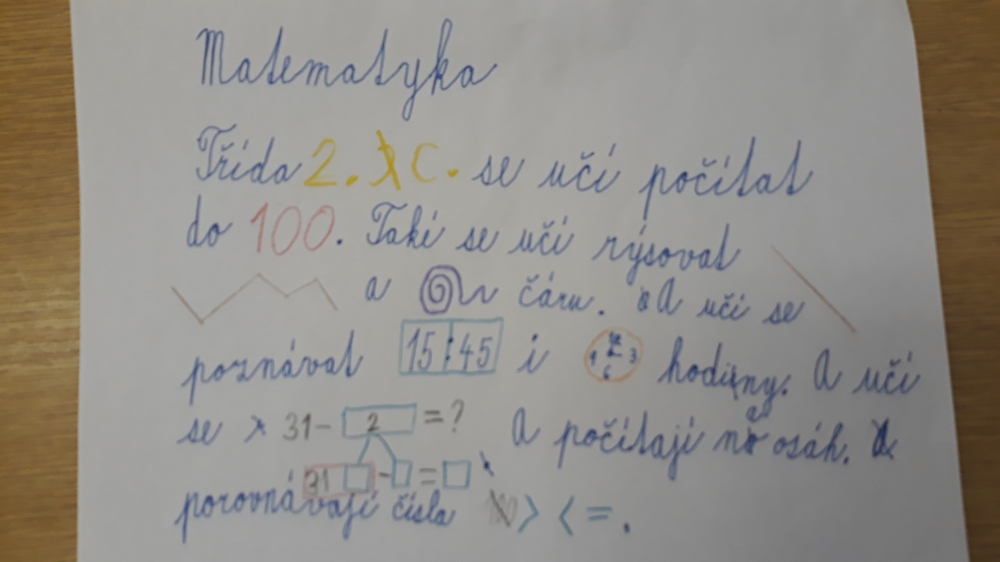 Matematyka
Třída 2. C. se učí počítat
do 100. Taki se učí rýsovat
a čáru. A učí se
poznávat 15:45 i 12 9 3 6 hodiny. A učí
se 31- 2 =? A počítají na osáh.
31 - =
porovnávají čísla > < = .